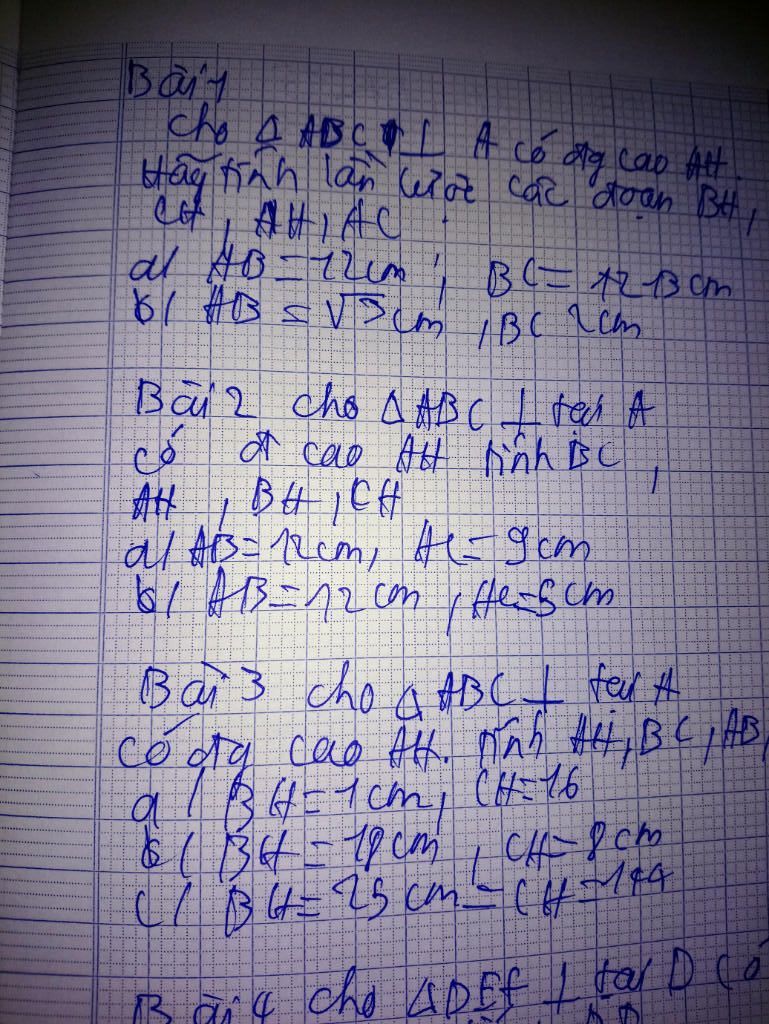 Bài 1
cho Δ ABC ⊥ A có đg cao AH.
Hãy tính lần lượt các đoạn BH,
CH, AH, AC
a/ AB = 12cm, BC = 13cm
b/ AB = √3cm, BC 2cm
Bài 2 cho ΔABC ⊥ tại A
có đ cao AH tính BC,
AH, BH, CH
a/ AB = 12cm, AC = 9cm
b/ AB = 12cm, AC = 5cm
Bài 3 cho ΔABC ⊥ tại A
có đg cao AH. tính AH, BC, AB,
a/ BH = 1cm, CH = 16
b/ BH = 18cm, CH = 8cm
c/ BH = 25cm = CH = 144
Bài 4 cho ΔDEF ⊥ tại D có